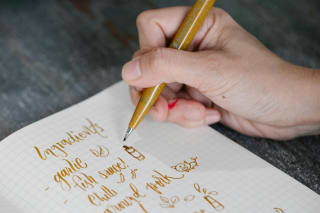 Ingredients
- garlic
- fish sauce
- chilli
- ground pork